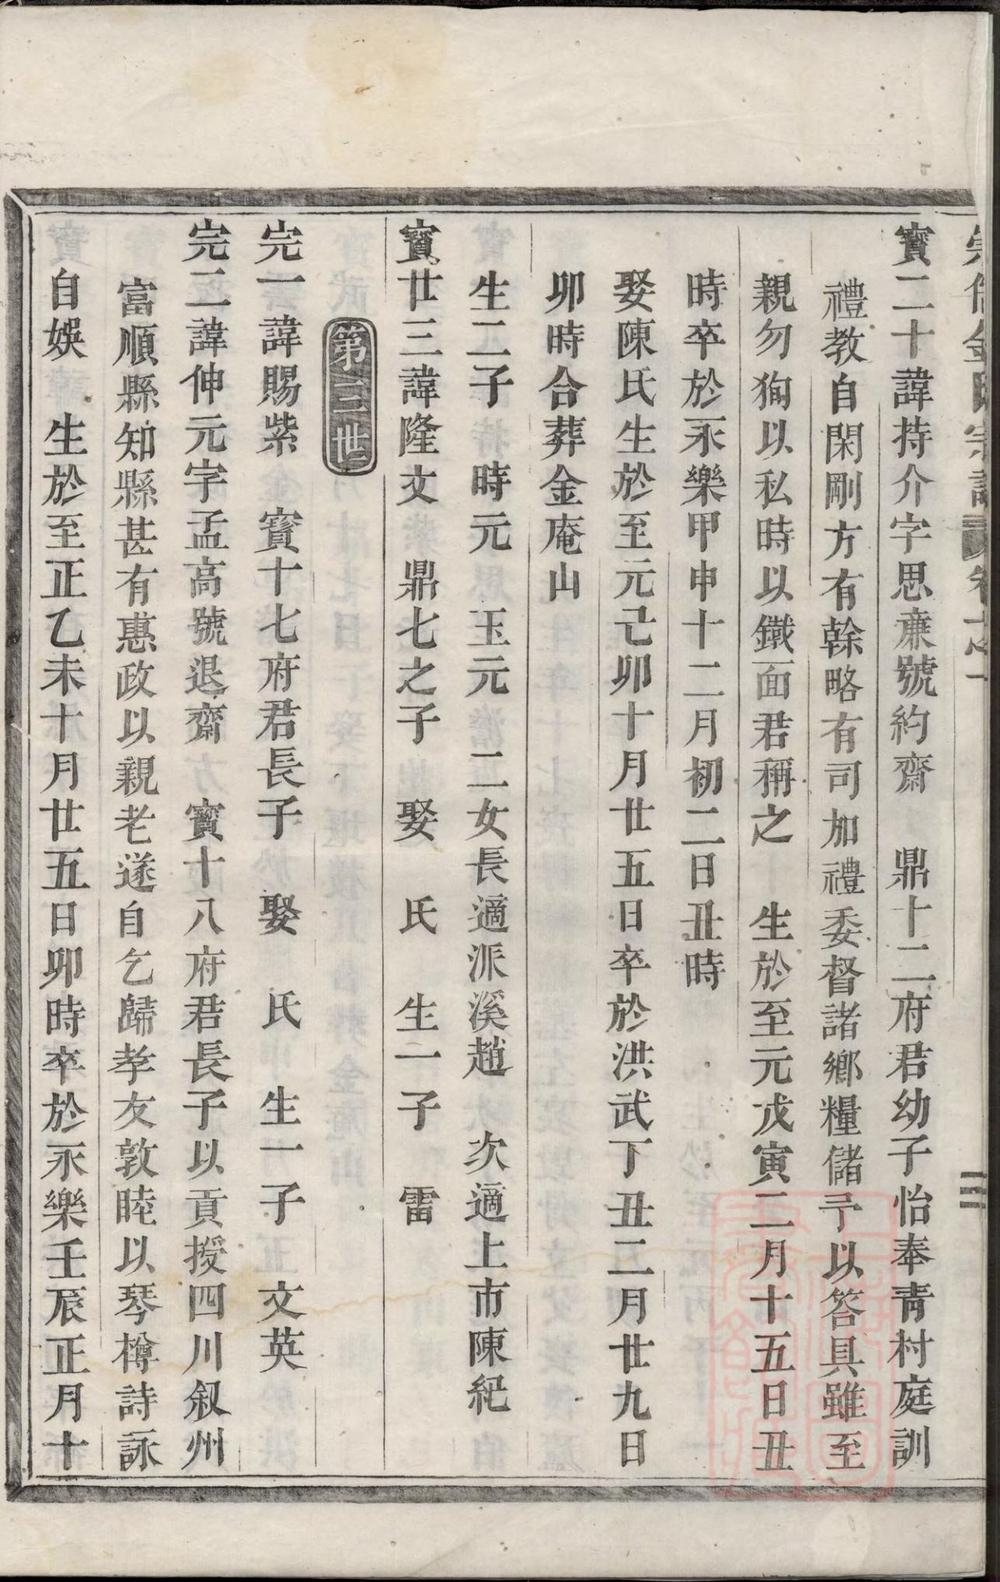 寳二十諱持介字思亷號約齋　鼎十二府君幼子怡奉青村庭訓
禮教自閑剛方有幹略有司加禮委督諸鄉糧儲予以答具雖至
親勿狥以私時以鐵面君稱之　生於至元戊寅二月十五日丑
時卒於永樂甲申十二月初二日丑時
娶陳氏生於至元己卯十月廿五日卒於洪武丁丑二月廿九日
卯時合葬金庵山
生二子　時元　玉元　二女長適派溪趙　次適上市陳紀
寳廿三諱隆文　鼎七之子　娶　氏　生一子　雷
第三世
完一諱賜紫　寳十七府君長子　娶　氏　生一子　文英
完二諱伸元字孟高號退齋　寳十八府君長子以貢授四川叙州
富順縣知縣甚有惠政以親老遂自乞歸孝友敦睦以琴樽詩詠
自娛　生於至正乙未十月廿五日卯時卒於永樂壬辰正月十